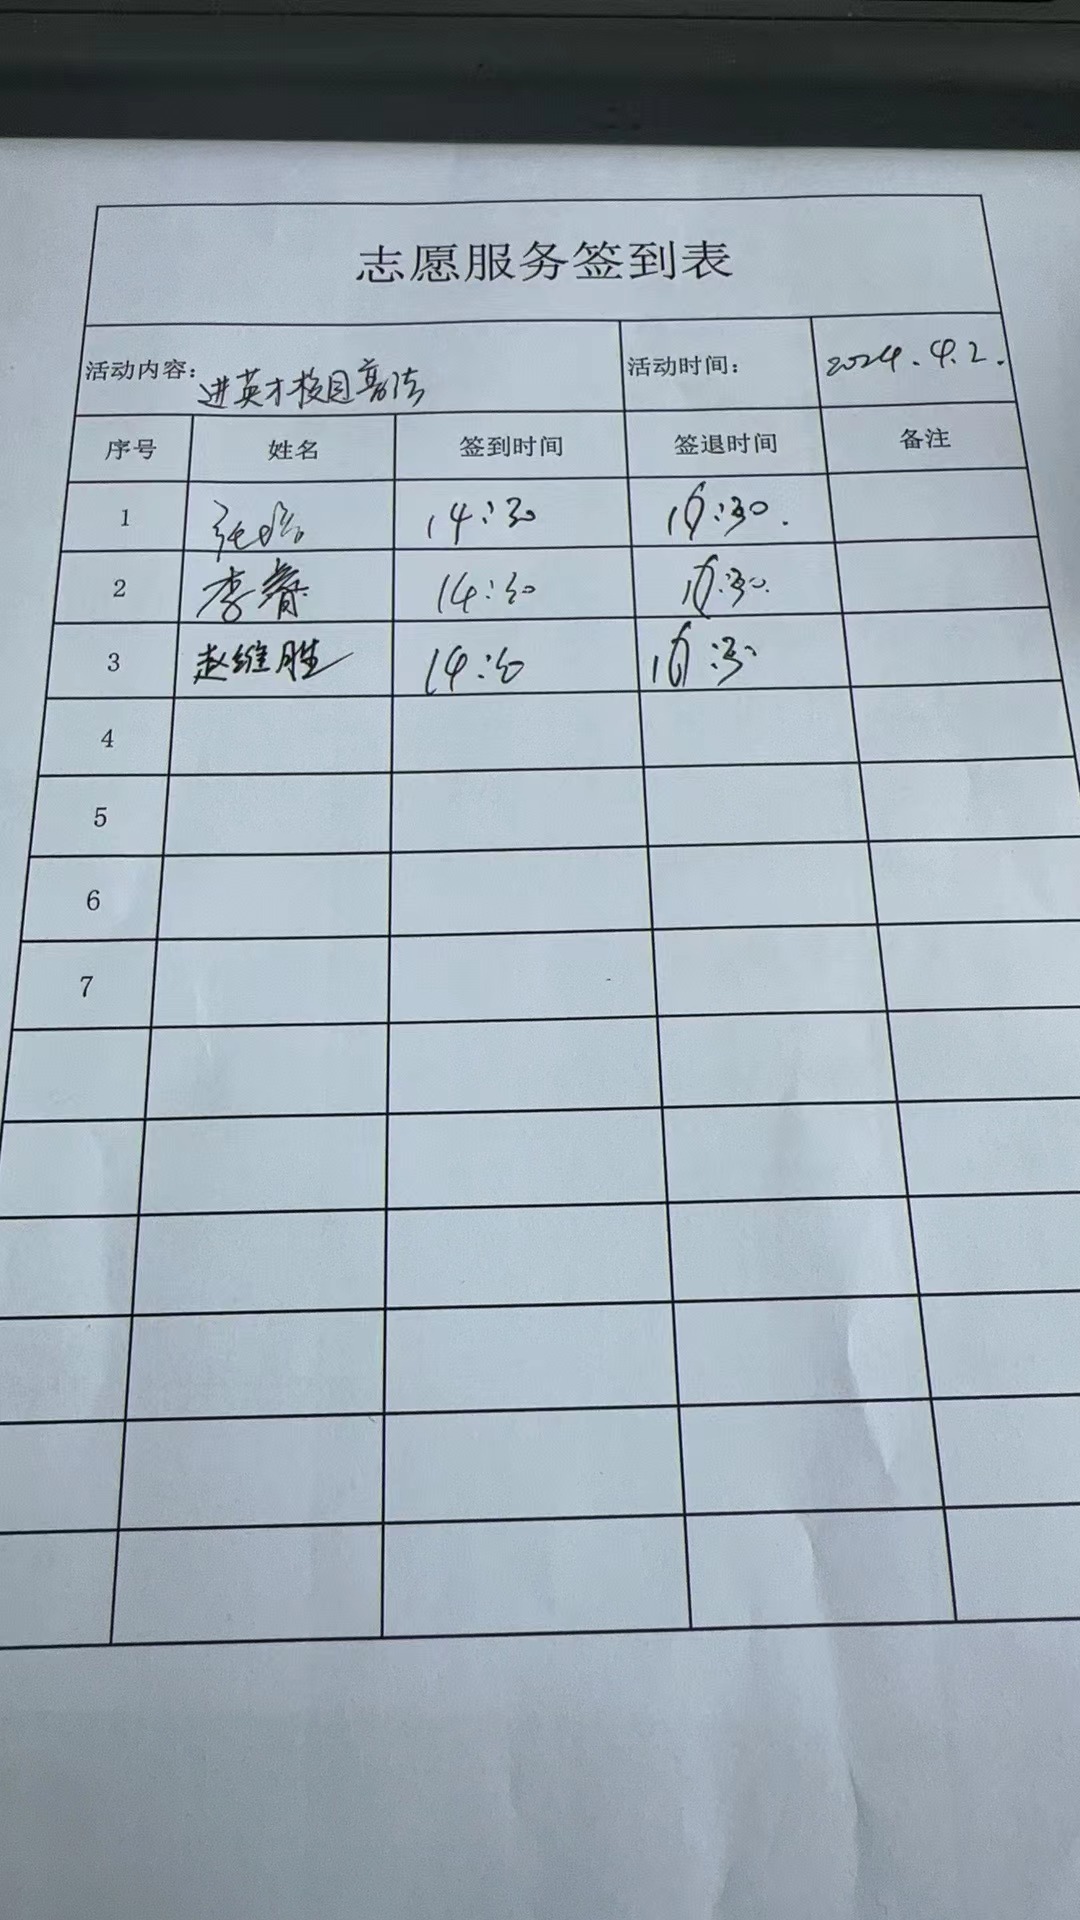 志愿服务签到表
活动内容: 进英才校园普法 活动时间: 2024.4.2.
序号 姓名 签到时间 签退时间 备注
1 张 14:30 16:30.
2 李睿 14:30 16:30.
3 赵维胜 14:30 16:30
4
5
6
7